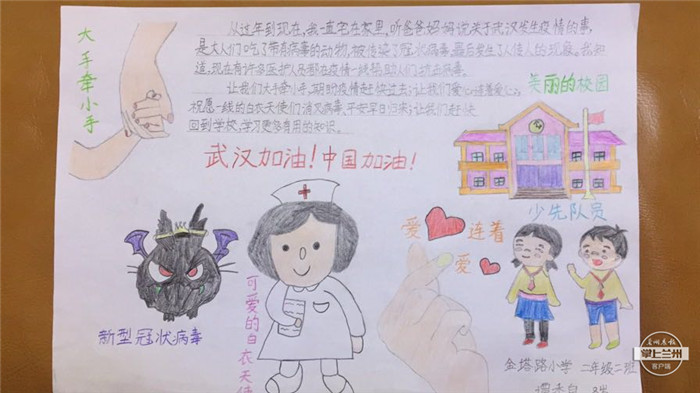 大手牵小手
从过年到现在,我一直宅在家里,听爸爸妈妈说关于武汉发生疫情的事,
是大人们吃了带有病毒的动物,被传染了冠状病毒,最后发生了人传人的现象。我知
道,现在有许多医护人员都在疫情一线帮助人们抗击病毒。
让我们大手牵小手,期盼疫情赶快过去;让我们爱心连着爱心,
祝愿一线的白衣天使们消灭病毒、平安早日归来;让我们赶快
回到学校,学习更多有用的知识。
美丽的校园
武汉加油!中国加油!
少先队员
爱连着
爱
新型冠状病毒
可爱的白衣天使
金塔路小学 二年级二班
掌上兰州
客户端